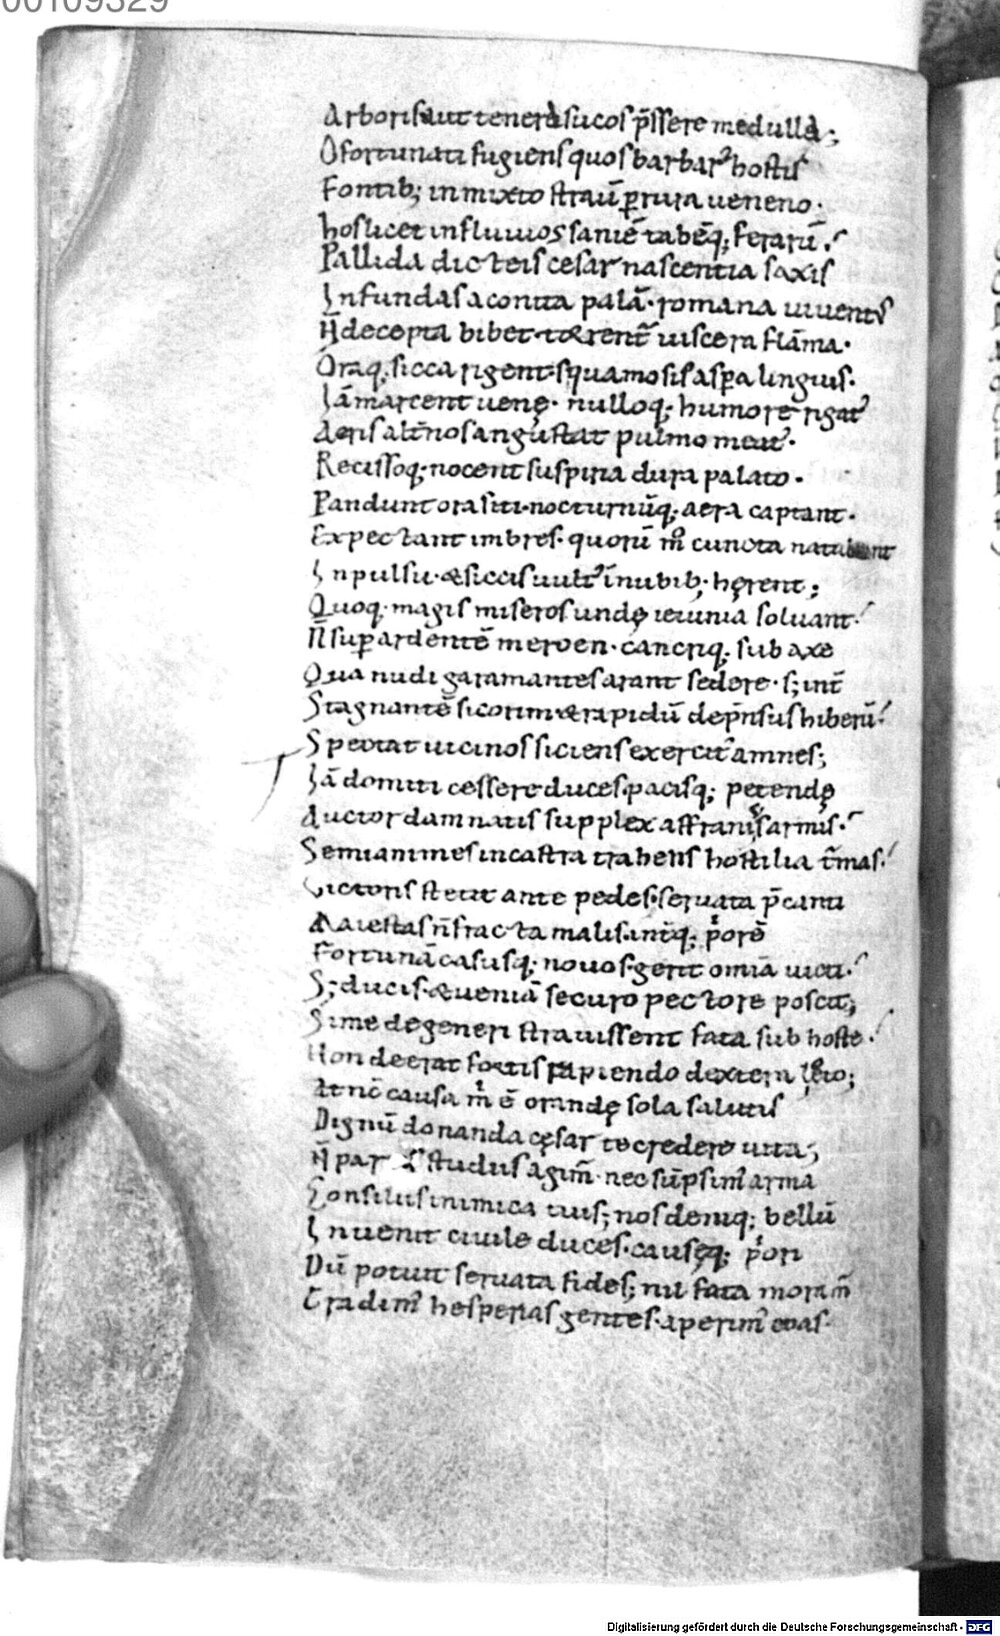 00109329
Arboris aut tenera sucos p̄ssere medulla;
O fortunati fugiens quos barbar᷒ hostis
Fontib; inmixto strau̅ ꝑ rura ueneno·
hos licet in fluuios saniē tabēq; ferarū·
Pallida dicteis cesar nascentia saxis
Infundas aconita palā· romana iuuent᷒
N̄ decepta bibet· torrent᷒ uiscera flāma·
Oraq; sicca rigent squamosis aspera linguis·
Iā marcent uenę· nulloq; humore rigat᷒
Aeris alt̄nos angustat pulmo meat᷒·
Recissoq; nocent suspiria dura palato·
Pandunt ora siti· nocturnūq; aera captant·
Expectant imbres· quorū m̊ cuncta natabant
Inpulsu· & siccis uult᷒ in nubib; hęrent;
Quoq· magis miseros undę ieiunia soluant·
N̄ suꝑ ardentē meroen· cancriq; sub axe
Qua nudi garamantes arant sedere· s; int̄
Stagnantē sicorim & rapidū dep̄nsus hiberū·
Spectat uicinos siciens exercit᷒ amnes;
Iā domiti cessere duces· pacisq; petendę
Auctor damnatis supplex affranius armis·
Semianimes in castra trahens hostilia t̄mas·
Victoris stetit ante pedes· seruata p̄canti
Maiestas n̄ fracta malis· int̄q; p̍orē
Fortunā casusq; nouos· gerit omīa uicti·
S; ducis· & ueniā securo pectore poscit;
Si me degeneri strauissent fata sub hoste·
Non deerat fortis rapiendo dextera leto;
At n̄c causa m̍ ē orandę sola salutis
Dignū donanda cęsar te credere uita;
N̄ par studiis agim᷒· nec sūpsim᷒ arma
Consiliis inimica tuis; nos deniq; bellū
Inuenit ciuile duces· causęq; p̍ori
Dū potuit seruata fides; nil fata moram᷒
Tradim᷒ hesperias gentes· aperim᷒ eoas·
Digitalisierung gefördert durch die Deutsche Forschungsgemeinschaft - DFG